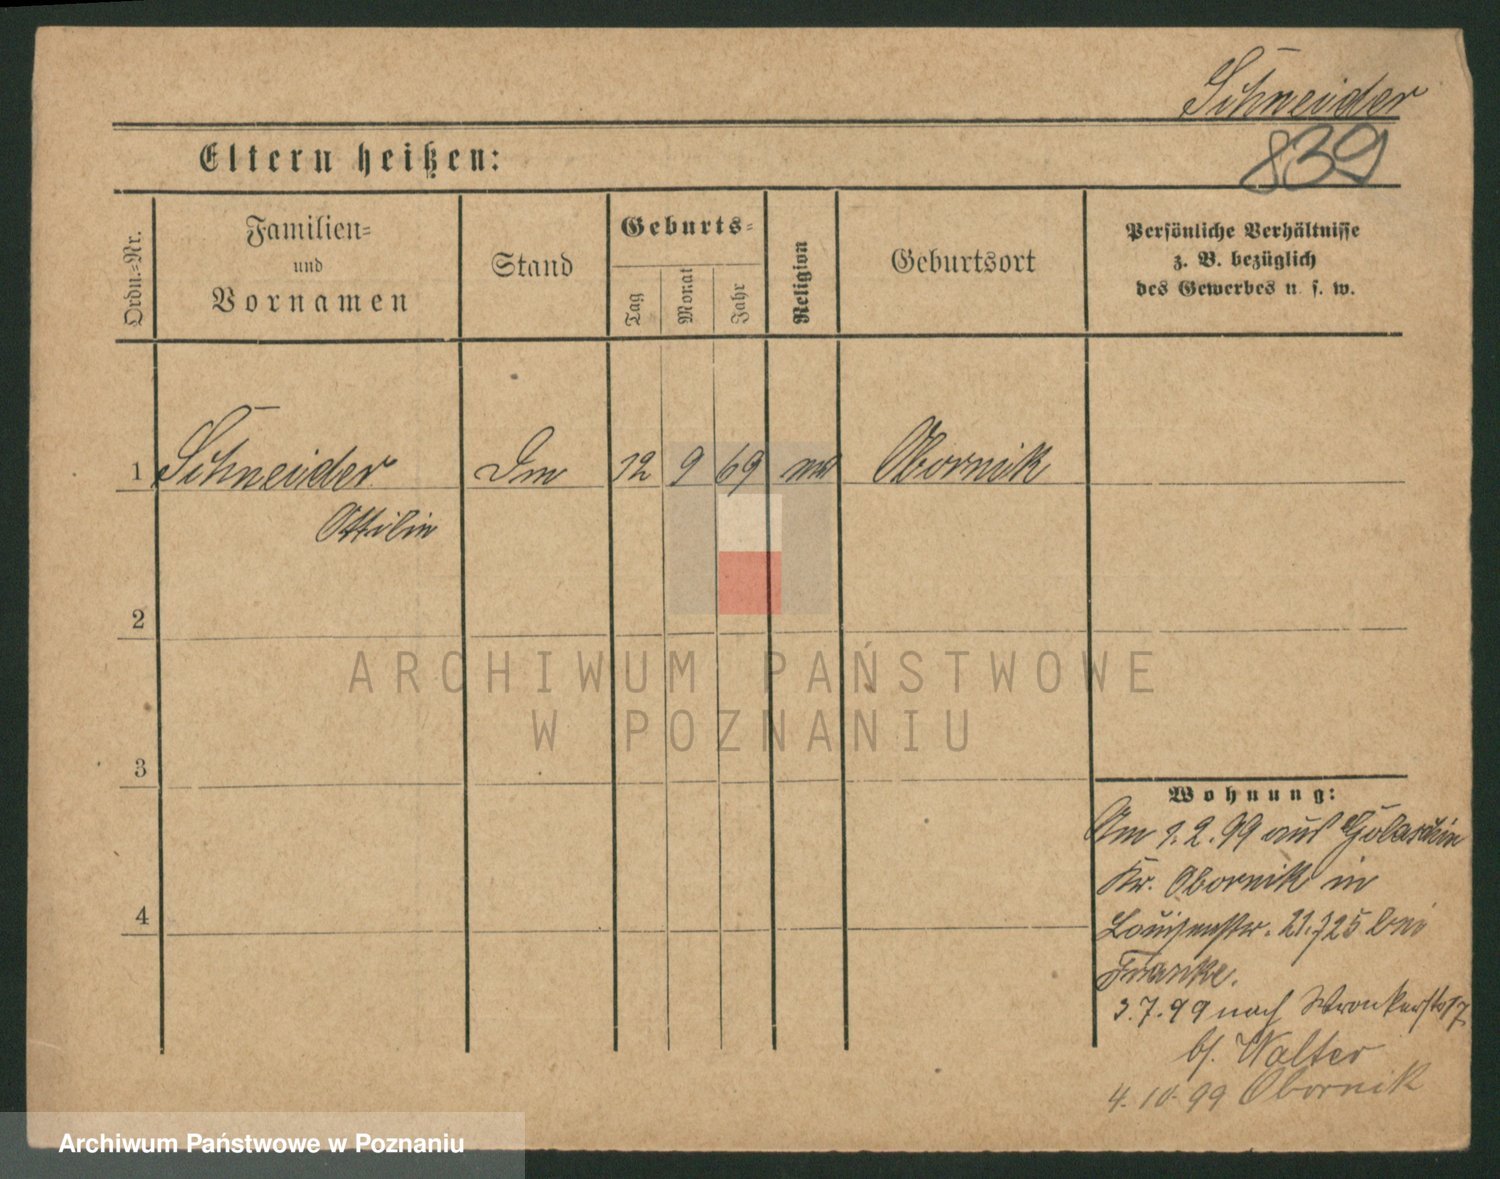 Schneider
Eltern heißen:
839
Ordn.=Nr.
Familien=
und
Vornamen
Stand
Geburts=
Tag
Monat
Jahr
Religion
Geburtsort
Persönliche Verhältnisse
z. B. bezüglich
des Gewerbes u. s. w.
1 Schneider 12 9 69 Obornik
Ottilie
2
3
4
Wohnung:
Am 1.2.99 aus
Kr. Obornik in
Louisenstr. bei
Franke.
3.7.99 nach Wronkerstr 17
bf. Walter
4.10.99 Obornik
ARCHIWUM PAŃSTWOWE
W POZNANIU
Archiwum Państwowe w Poznaniu